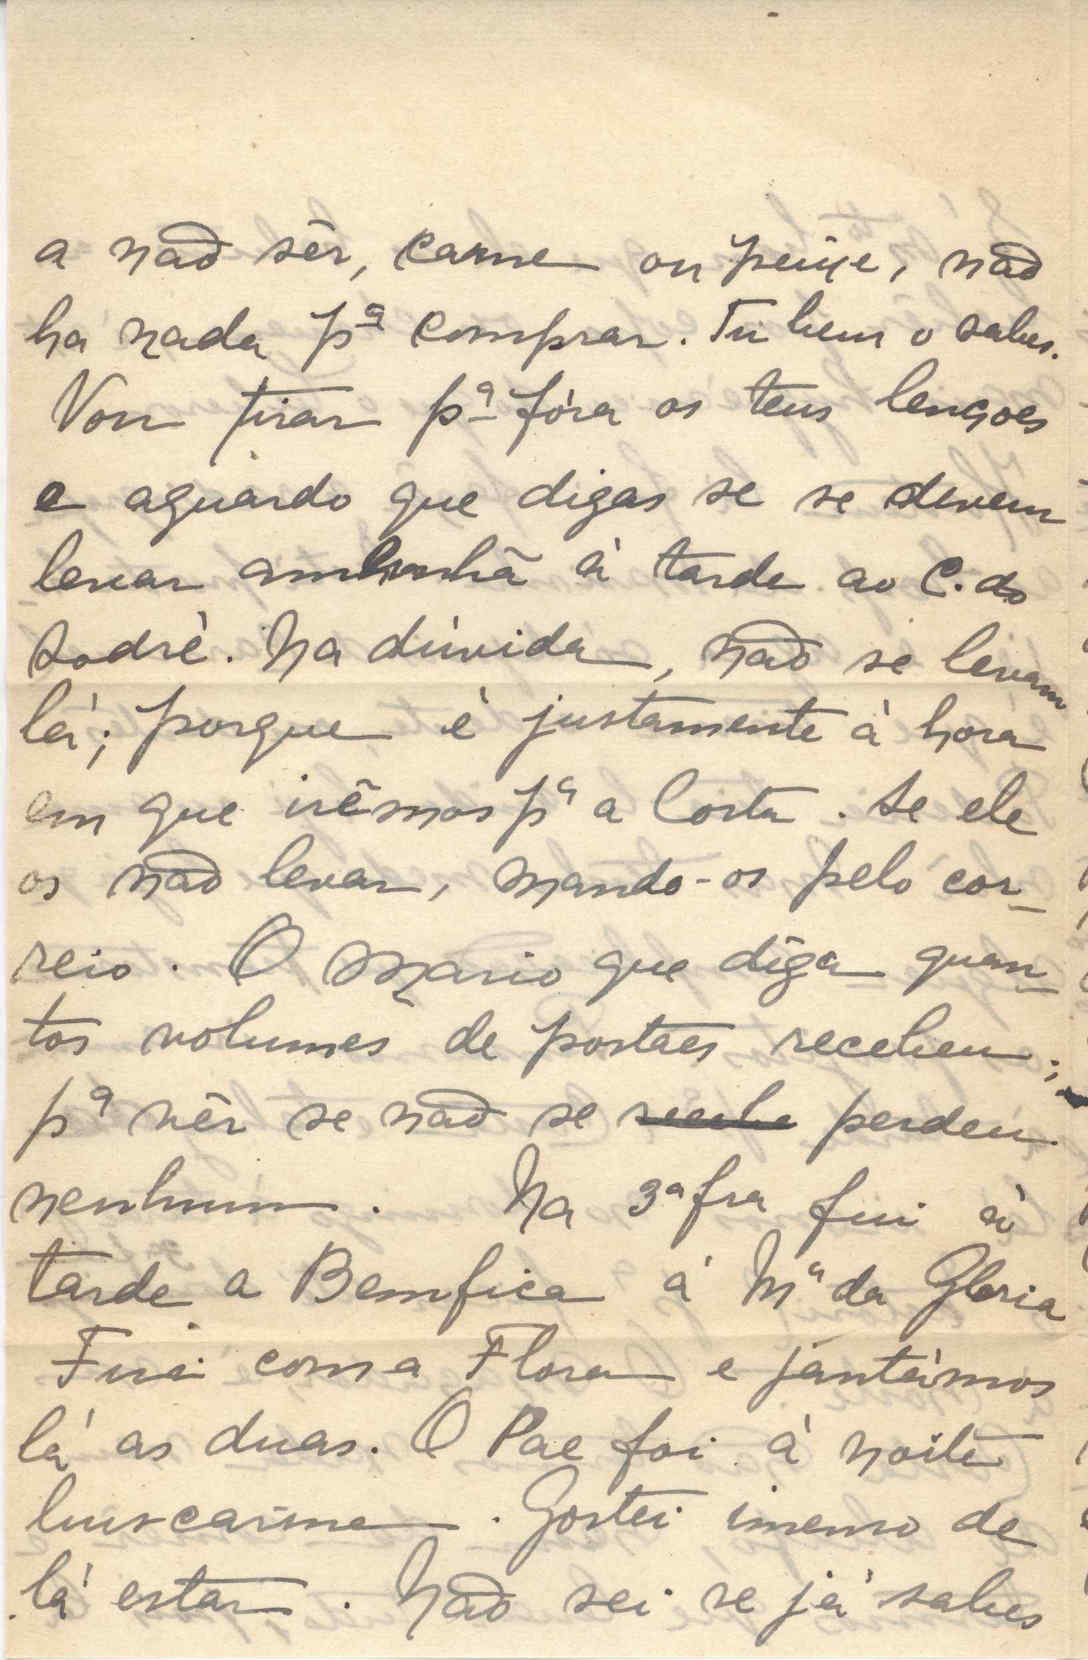 a não sêr, carne ou peixe, não
ha nada pª comprar. Tu bem o sabes.
Vou tirar pª fóra os teus lençoes
e aguàrdo que digas se se devem
levar amhanhã à tarde ao C. do
Sodrè. Na dùvida, não se levam
là; porque è justamente à hora
em que irêmos pª a Costa. Se ele
os não levar, mando-os pelo cor-
reio. O Mario que diga quan-
tos volumes de postaes recebeu;
pª vêr se não se recebe perdeu
nenhum. Na 3ª fra fui à
tarde a Bemfica à Mª da Gloria
Fui com a Flora e jantàmos
là as duas. O Pae foi à noite
buscarme. Gostei imenso de
là estar. Não sei se jà sabes